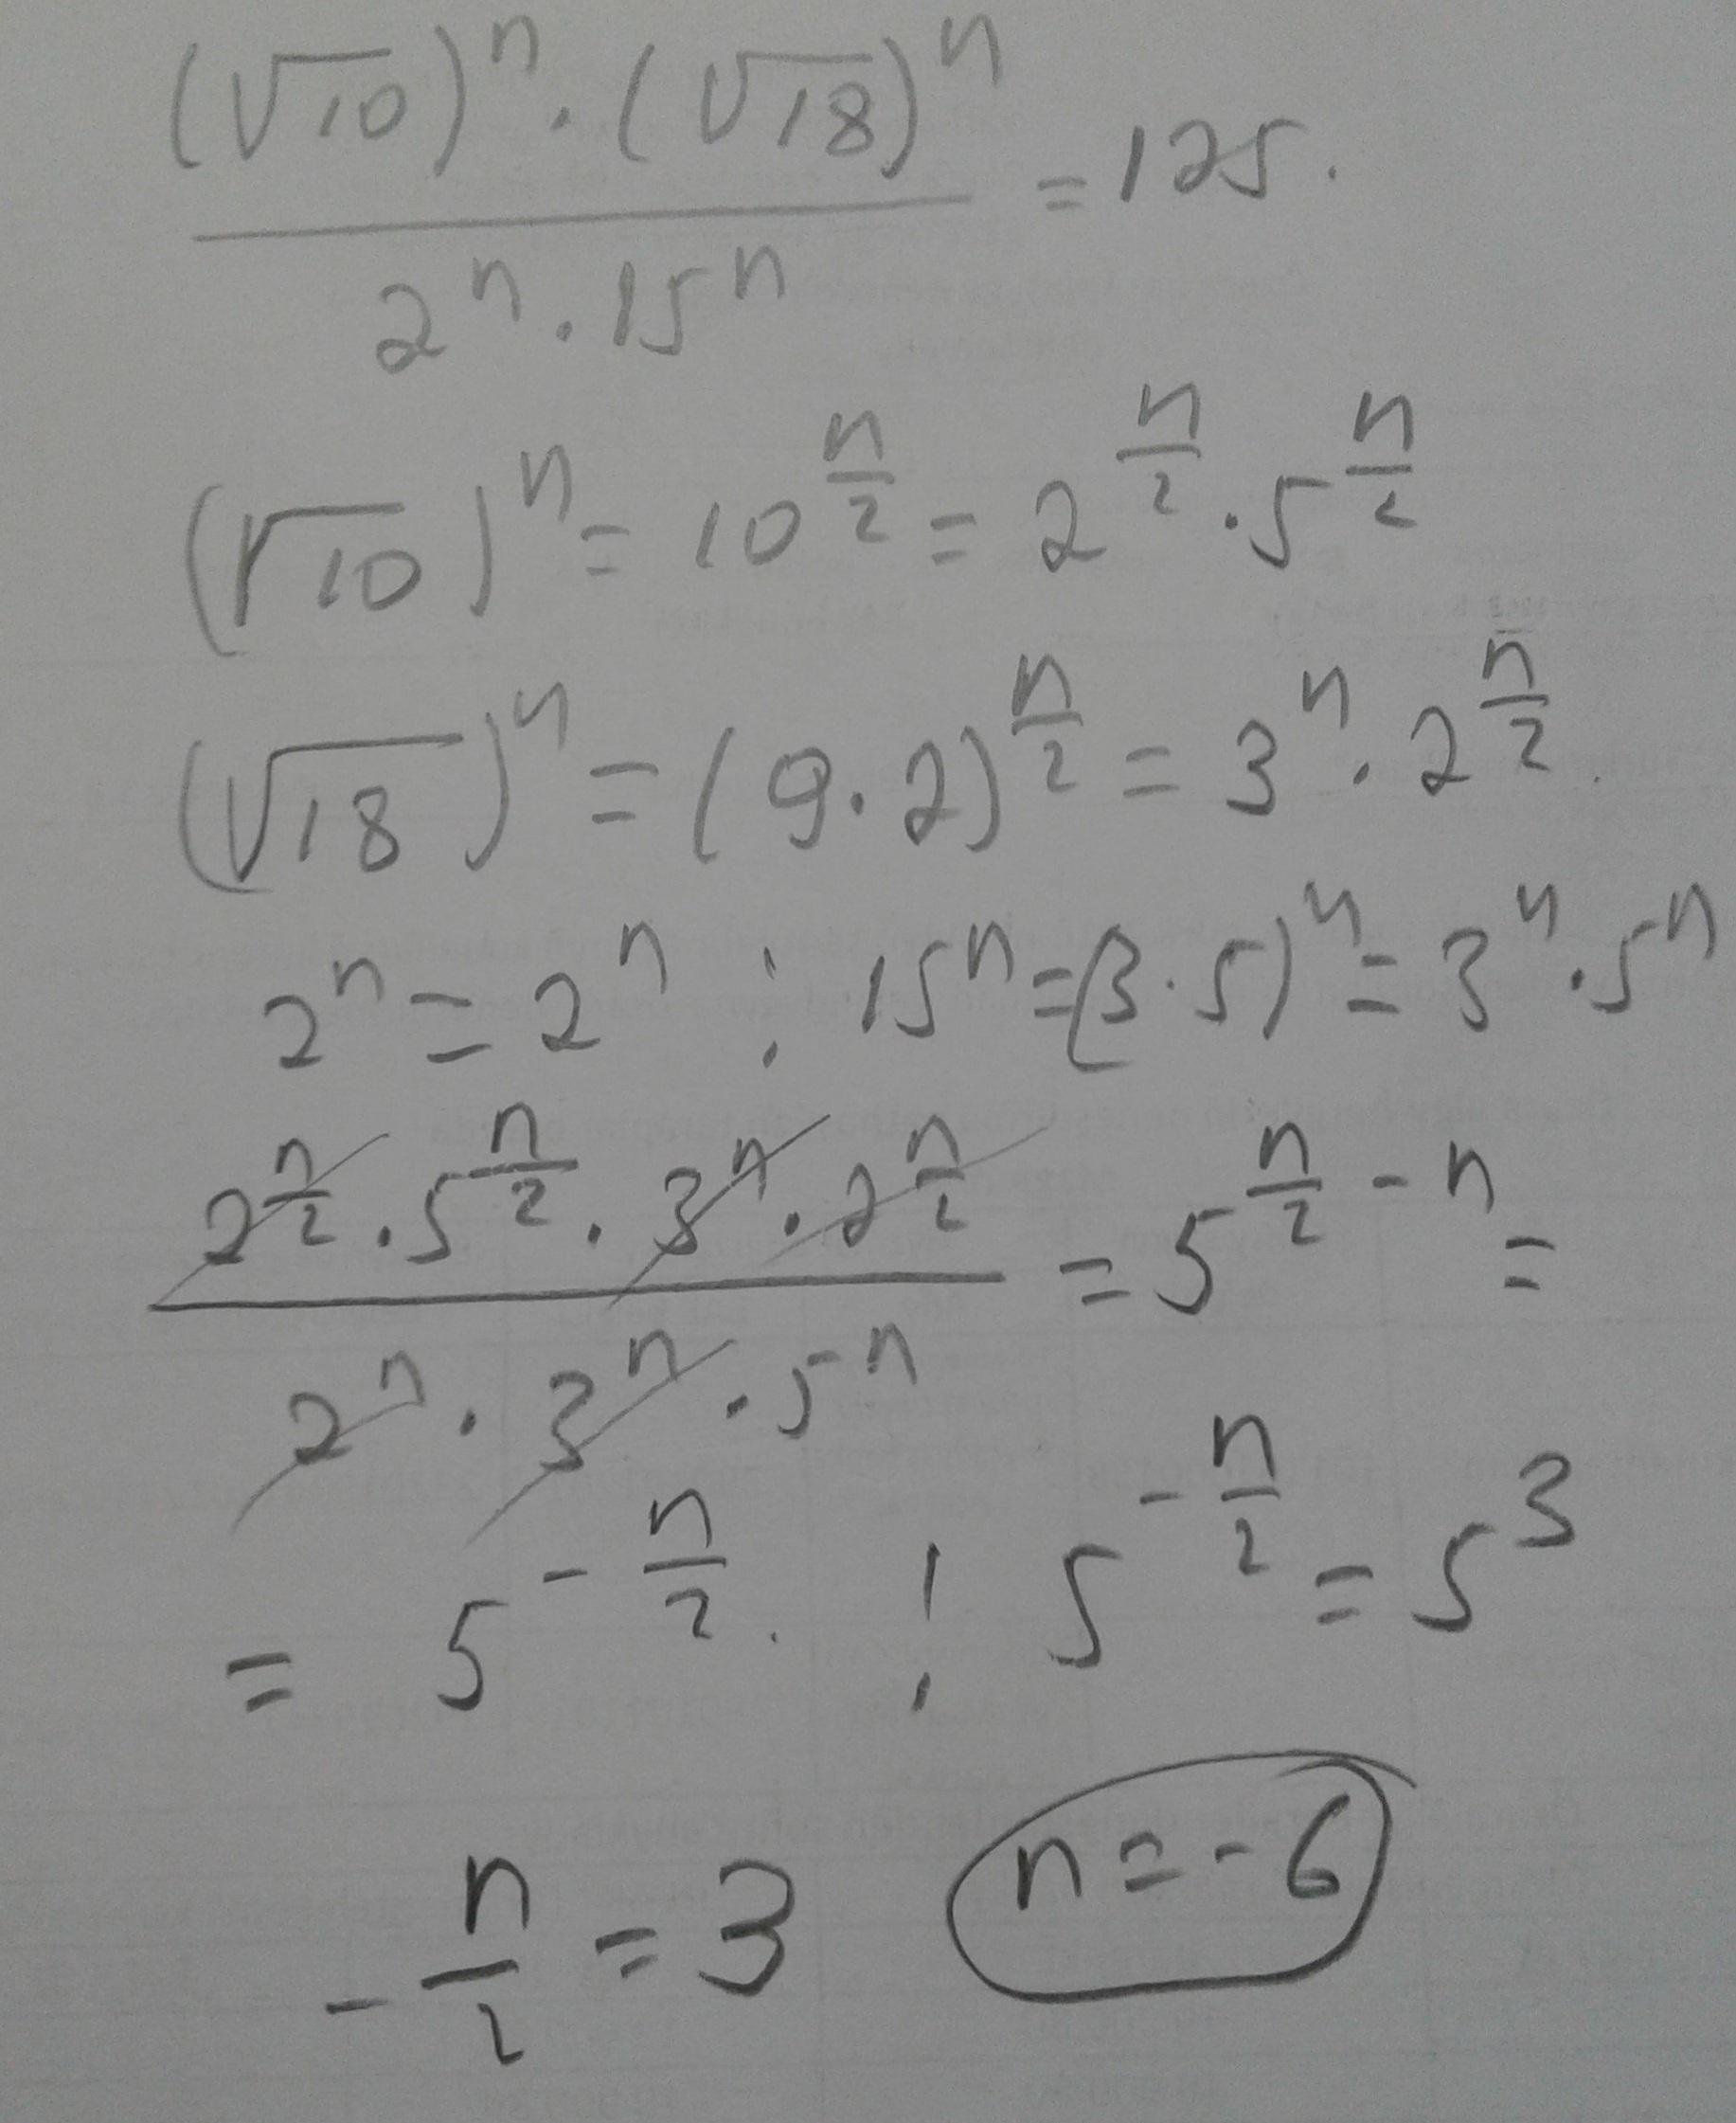 (√10)^n · (√18)^n / 2^n · 15^n = 125.
(√10)^n = 10^(n/2) = 2^(n/2) · 5^(n/2)
(√18)^n = (9·2)^(n/2) = 3^n · 2^(n/2).
2^n = 2^n ; 15^n = (3·5)^n = 3^n · 5^n
2^(n/2) · 5^(n/2) · 3^n · 2^(n/2) / 2^n · 3^n · 5^n = 5^(n/2 - n) =
= 5^(-n/2). ; 5^(-n/2) = 5^3
-n/2 = 3 n = -6